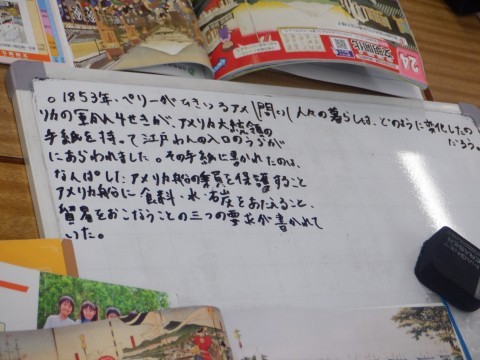 24
文明開化
問い 人々の暮らしは、どのように変化したの
だろう。
。1853年、ペリーがひきいるアメ
リカの軍かん4せきが、アメリカ大統領の
手紙を持って江戸わんの入口のうらが
にあらわれました。その手紙に書かれたのは、
なんぱしたアメリカ船の乗員を保護すること
アメリカ船に食料・水・石炭をあたえること、
貿易をおこなうことの三つの要求が書かれて
いた。